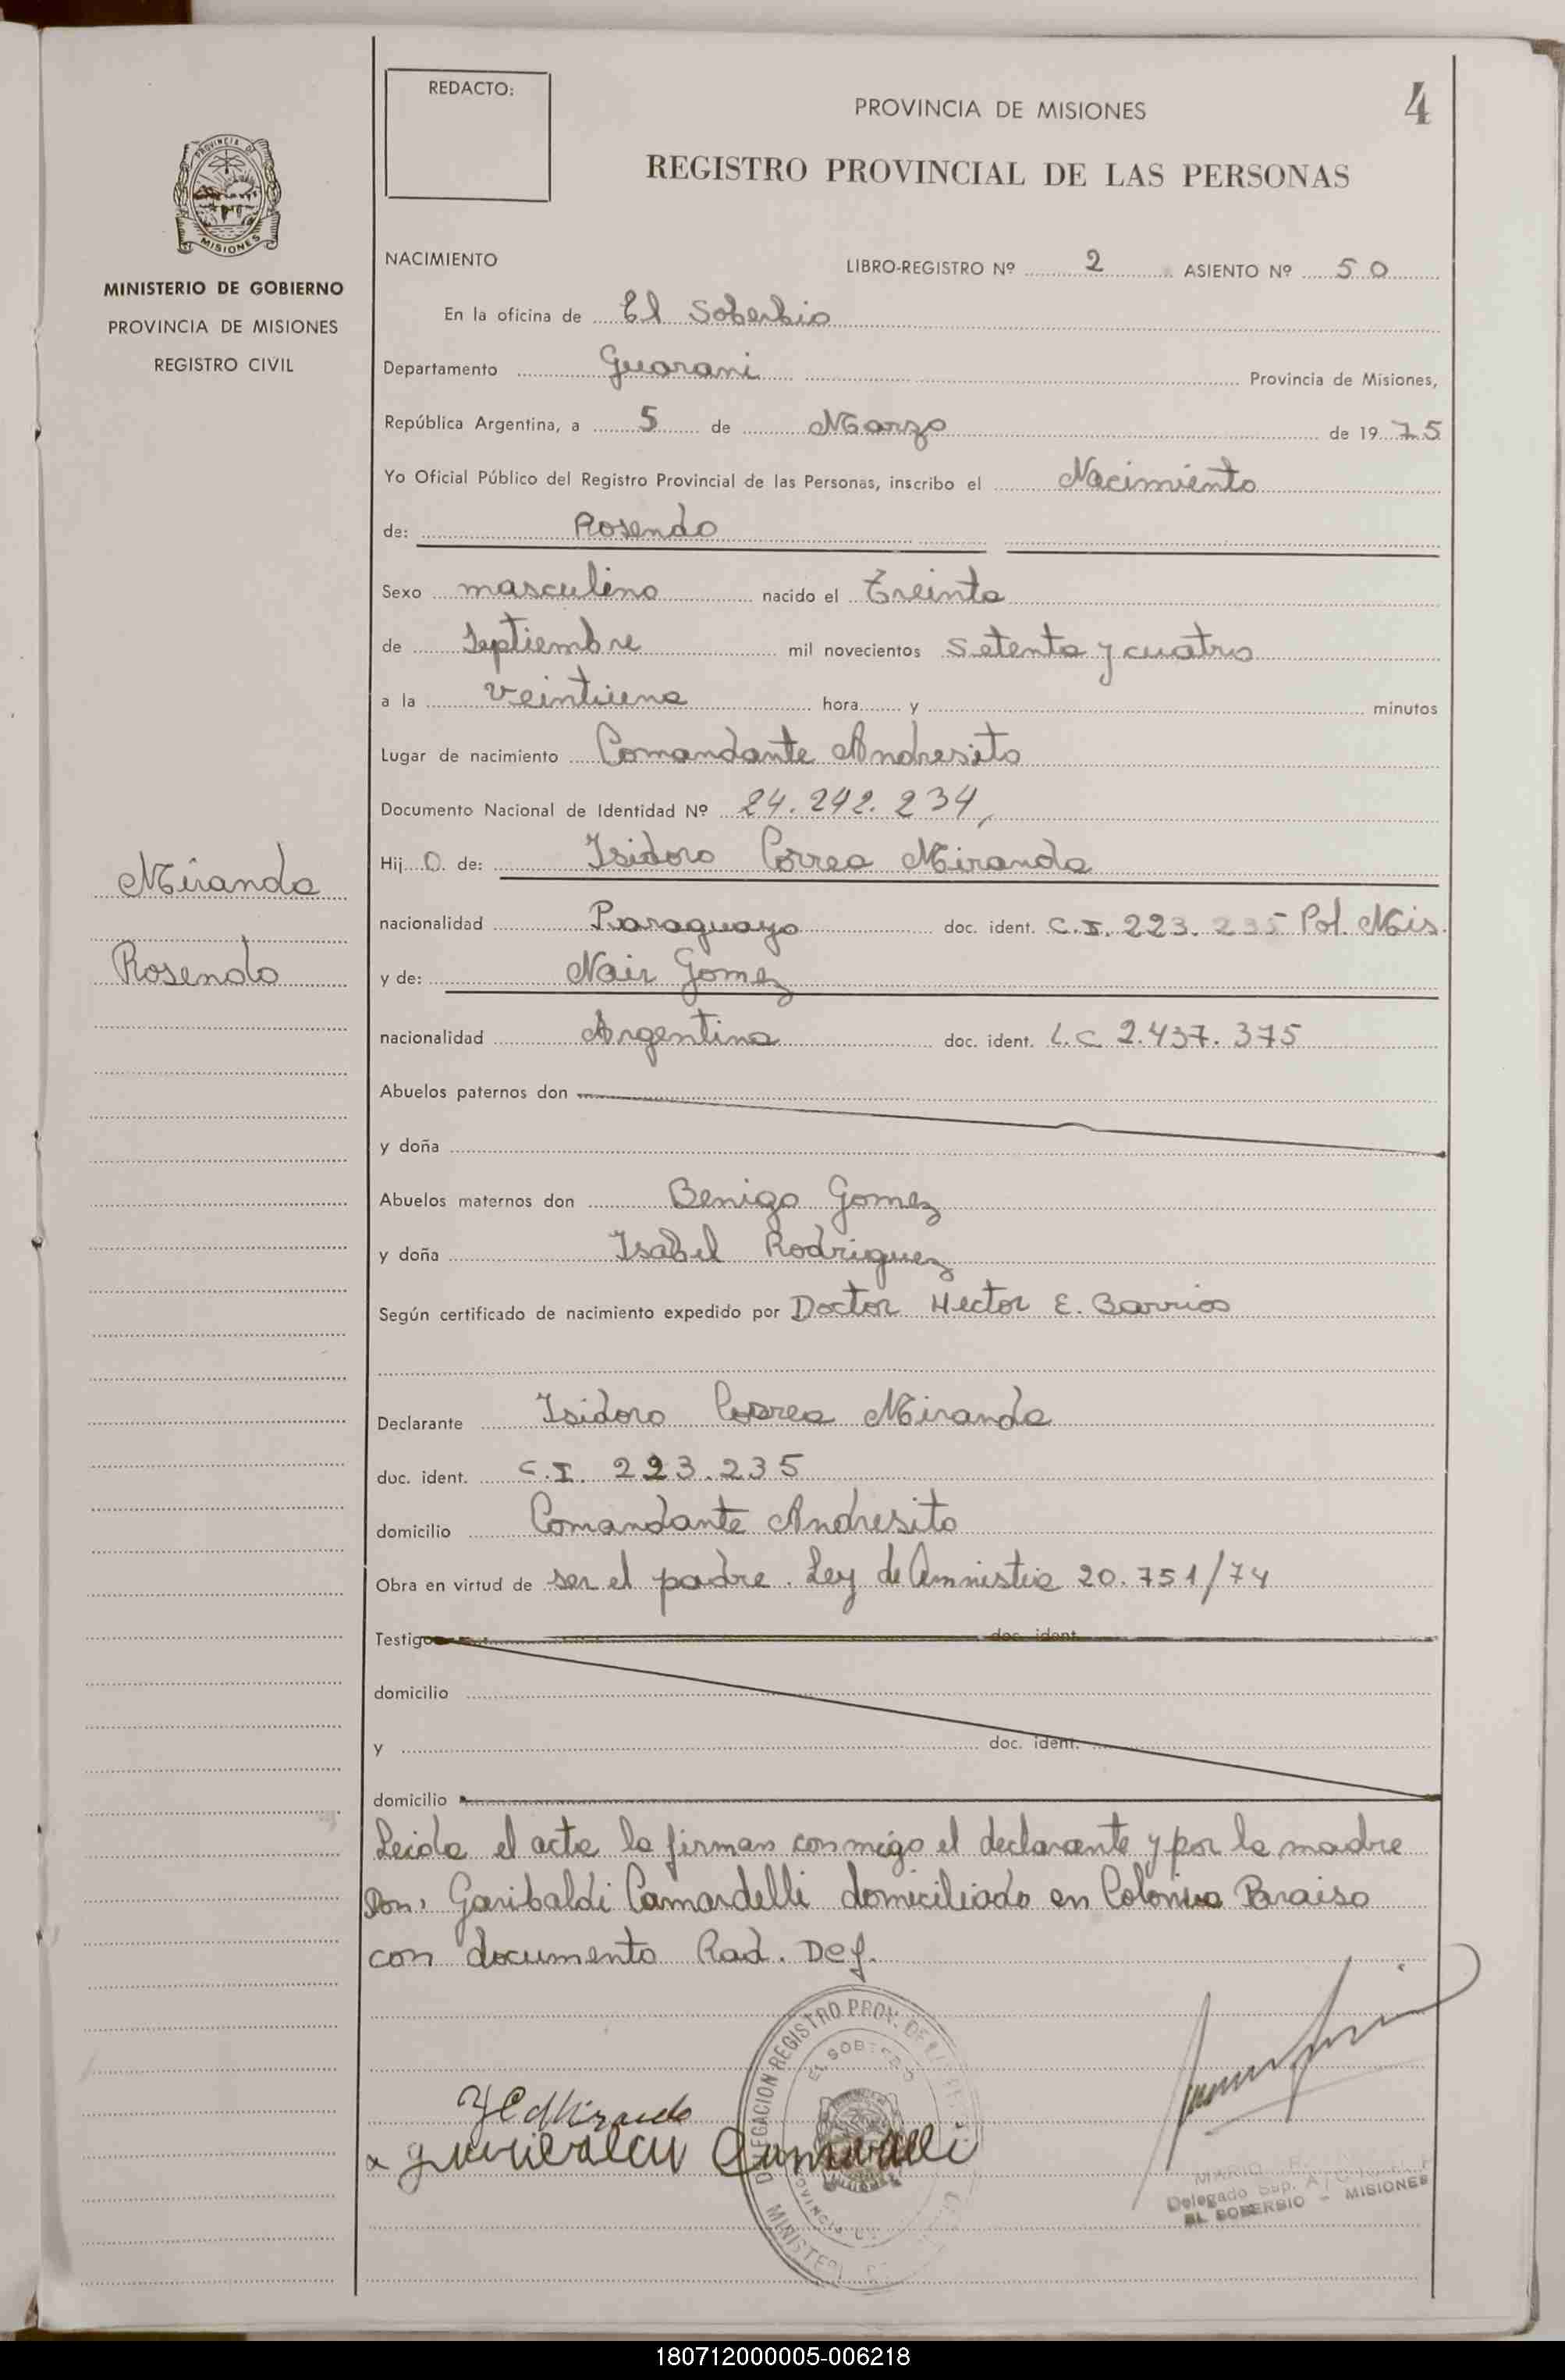 REDACTO:
PROVINCIA DE MISIONES
4
REGISTRO PROVINCIAL DE LAS PERSONAS
PROVINCIA DE
MISIONES
MINISTERIO DE GOBIERNO
PROVINCIA DE MISIONES
REGISTRO CIVIL
NACIMIENTO
LIBRO-REGISTRO Nº 2 ASIENTO Nº 50
En la oficina de El Soberbio
Departamento Guarani Provincia de Misiones,
República Argentina, a 5 de Marzo de 1975
Yo Oficial Público del Registro Provincial de las Personas, inscribo el Nacimiento
de: Rosendo
Sexo masculino nacido el Treinta
de Septiembre mil novecientos setenta y cuatro
a la veintiuna hora y minutos
Lugar de nacimiento Comandante Andresito
Documento Nacional de Identidad Nº 24.242.234,
Miranda
Rosendo
Hijo de: Isidoro Correa Miranda
nacionalidad Paraguayo doc. ident. C.I. 223.235 Pol. Mis.
y de: Nair Gomez
nacionalidad Argentina doc. ident. L.C 2.437.375
Abuelos paternos don
y doña
Abuelos maternos don Benigo Gomez
y doña Isabel Rodriguez
Según certificado de nacimiento expedido por Doctor Hector E. Barrios
Declarante Isidoro Correa Miranda
doc. ident. C.I. 223.235
domicilio Comandante Andresito
Obra en virtud de ser el padre. Ley de Amnistia 20.751/74
Testigo doc. ident.
domicilio
y doc. ident.
domicilio
Leida el acta la firman conmigo el declarante y por la madre
Don: Garibaldi Camardelli domiciliado en Colonia Paraiso
con documento Rad. Def.
DELEGACION REGISTRO PROV. DE
EL SOBERBIO
MARIO
Delegado Sup.
EL SOBERBIO - MISIONES
180712000005-006218